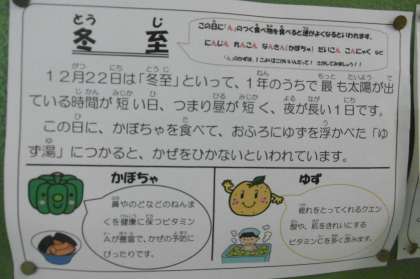 冬至
とうじ
この日に「ん」のつく食べ物を食べると運がよくなるといわれます。
にんじん れんこん なんきん(かぼちゃ) だいこん こんにゃく など
12月22日は「冬至」といって、1年のうちで最も太陽が出
ている時間が短い日、つまり昼が短く、夜が長い1日です。
この日に、かぼちゃを食べて、おふろにゆずを浮かべた「ゆ
ず湯」につかると、かぜをひかないといわれています。
かぼちゃ
鼻やのどなどのねんま
くを健康に保つビタミン
Aが豊富で、かぜの予防に
ぴったりです。
ゆず
疲れをとってくれるクエン
酸や、肌をきれいにする
ビタミンCを多く含みます。